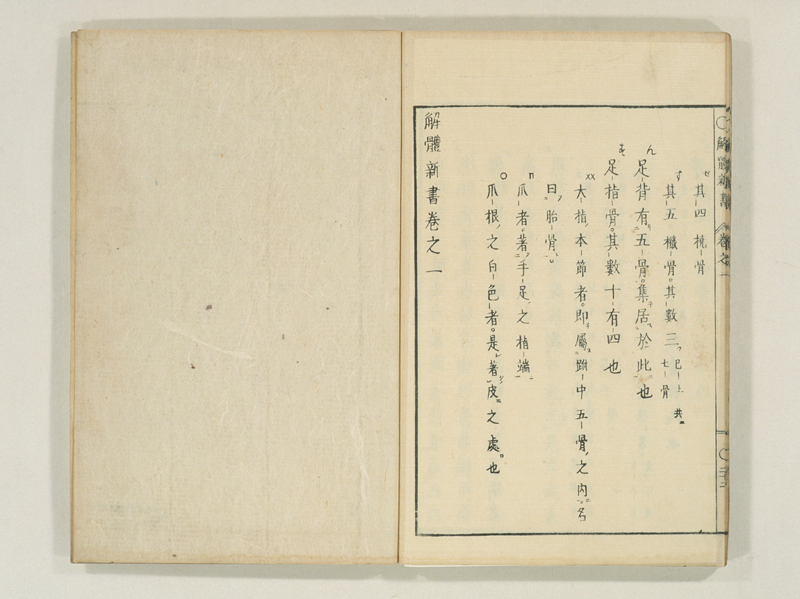 其四 梡骨
其五 檝骨其數三 已上共七骨
足背有五骨集居於此也
足指骨其數十有四也
大指本節者即屬跗中五骨之内名
曰胎骨
爪者著手足之指端
爪根之白色者是著皮之處也
解體新書卷之一
解體新書 卷之一